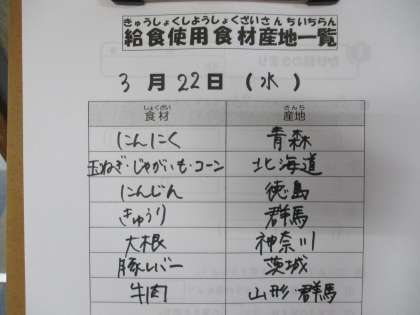 きゅうしょくしようしょくざいさんちいちらん
給食使用食材産地一覧
3月22日(水)
しょくざい さんち
食材 産地
にんにく 青森
玉ねぎ・じゃがいも・コーン 北海道
にんじん 徳島
きゅうり 群馬
大根 神奈川
豚レバー 茨城
牛肉 山形・群馬